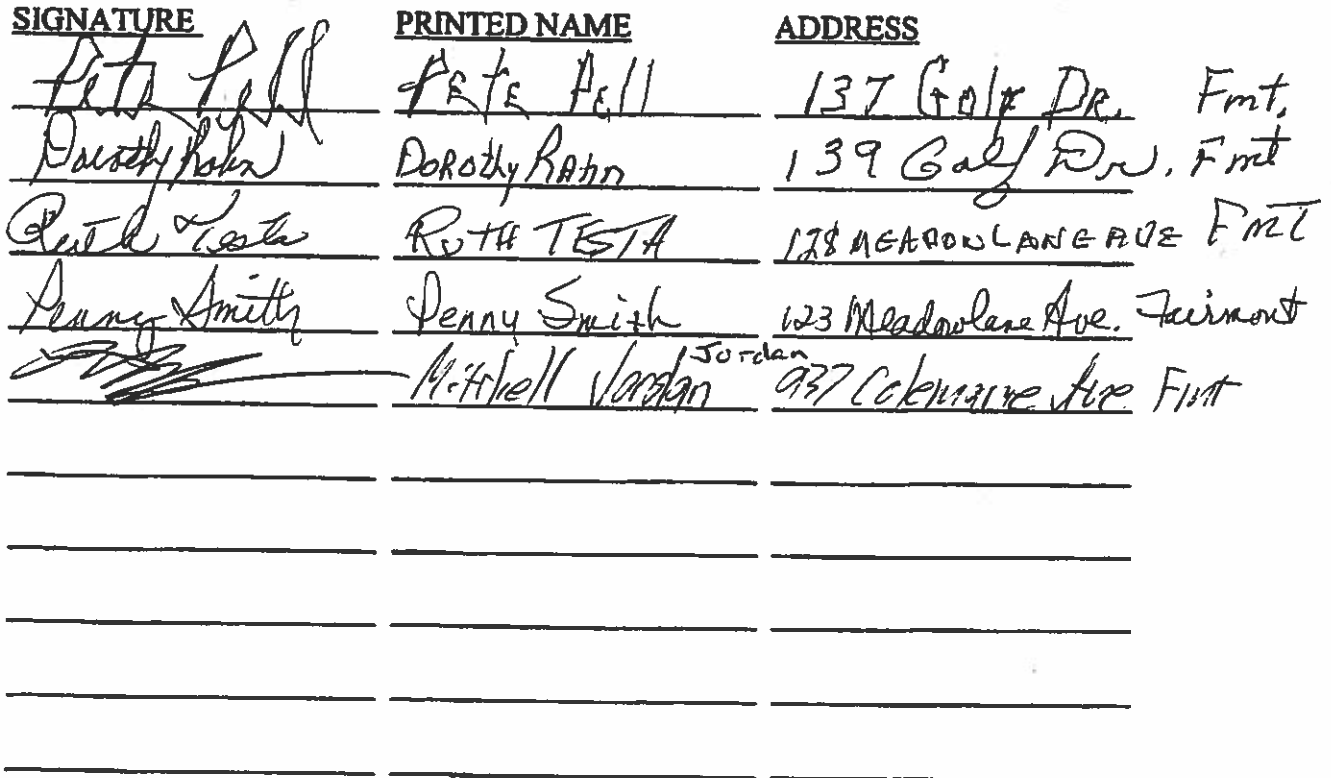 SIGNATURE PRINTED NAME ADDRESS
Pete Pell PETE PEll 137 Golf DR. Fmt.
Dorothy Rahn DoROthy RAhn 139 Golf Dr. Fmt
Ruth Testa RUTH TESTA 128 MEADOWLANE AVE FMT
Penny Smith Penny Smith 123 Meadowlane Ave. Fairmont
Jordan
Mitchell Jordan 937 Ave Fmt